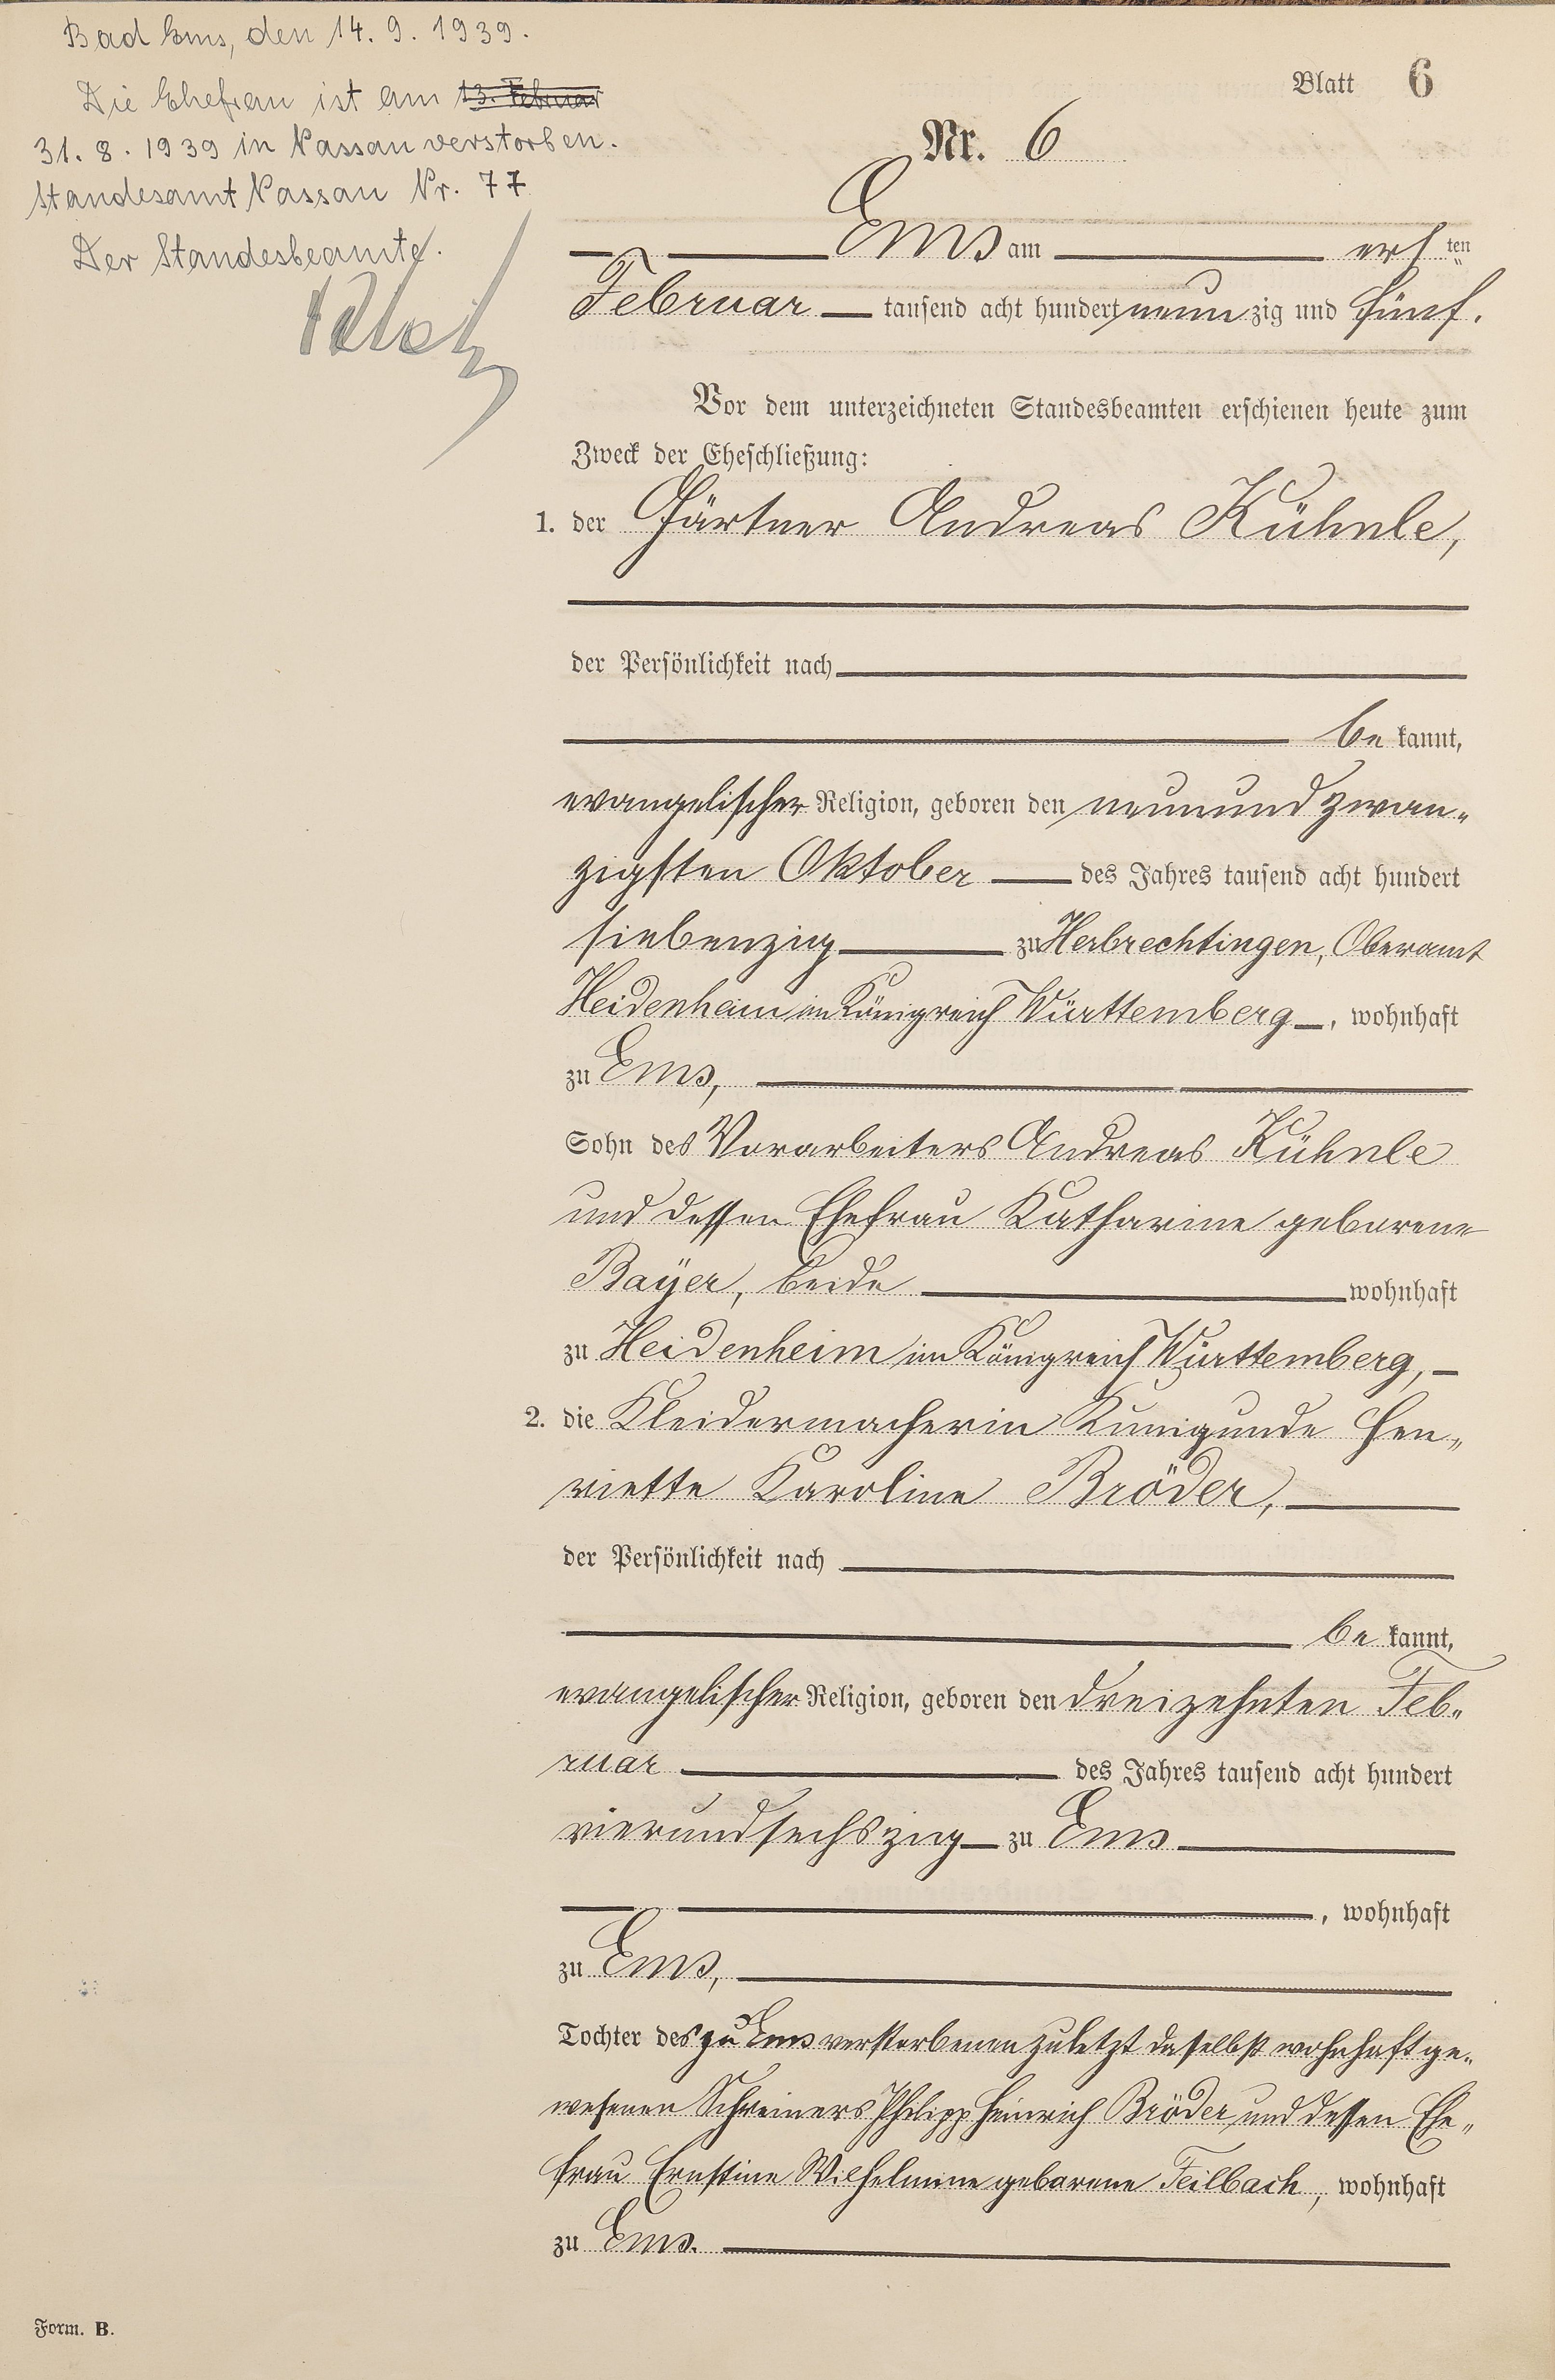 Bad Ems, den 14. 9. 1939.
Die Ehefrau ist am 13. Februar
31. 8. 1939 in Nassau verstorben.
Standesamt Nassau Nr. 77
Der Standesbeamte.
Blatt 6
Nr. 6
Ems am ersten
Februar tausend acht hundert neunzig und fünf.
Vor dem unterzeichneten Standesbeamten erschienen heute zum
Zweck der Eheschließung:
1. der Gärtner Andreas Kühnle,
der Persönlichkeit nach
bekannt,
evangelischer Religion, geboren den neunundzwan-
zigsten Oktober des Jahres tausend acht hundert
siebenzig zu Herbrechtingen, Oberamt
Heidenheim im Königreich Württemberg, wohnhaft
zu Ems,
Sohn des Vorarbeiters Andreas Kühnle
und dessen Ehefrau Katharine geborene
Bayer, beide wohnhaft
zu Heidenheim im Königreich Württemberg,
2. die Kleidermacherin Kunigunde Hen-
riette Karoline Bröder,
der Persönlichkeit nach
bekannt,
evangelischer Religion, geboren den dreizehnten Feb-
ruar des Jahres tausend acht hundert
vierundsechszig zu Ems
, wohnhaft
zu Ems,
Tochter des zu Ems verstorbenen zuletzt daselbst wohnhaft ge-
wesenen Schreiners Philipp Heinrich Bröder und dessen Ehe-
frau Ernstine Wilhelmine geborene Feilbach, wohnhaft
zu Ems.
Form. B.